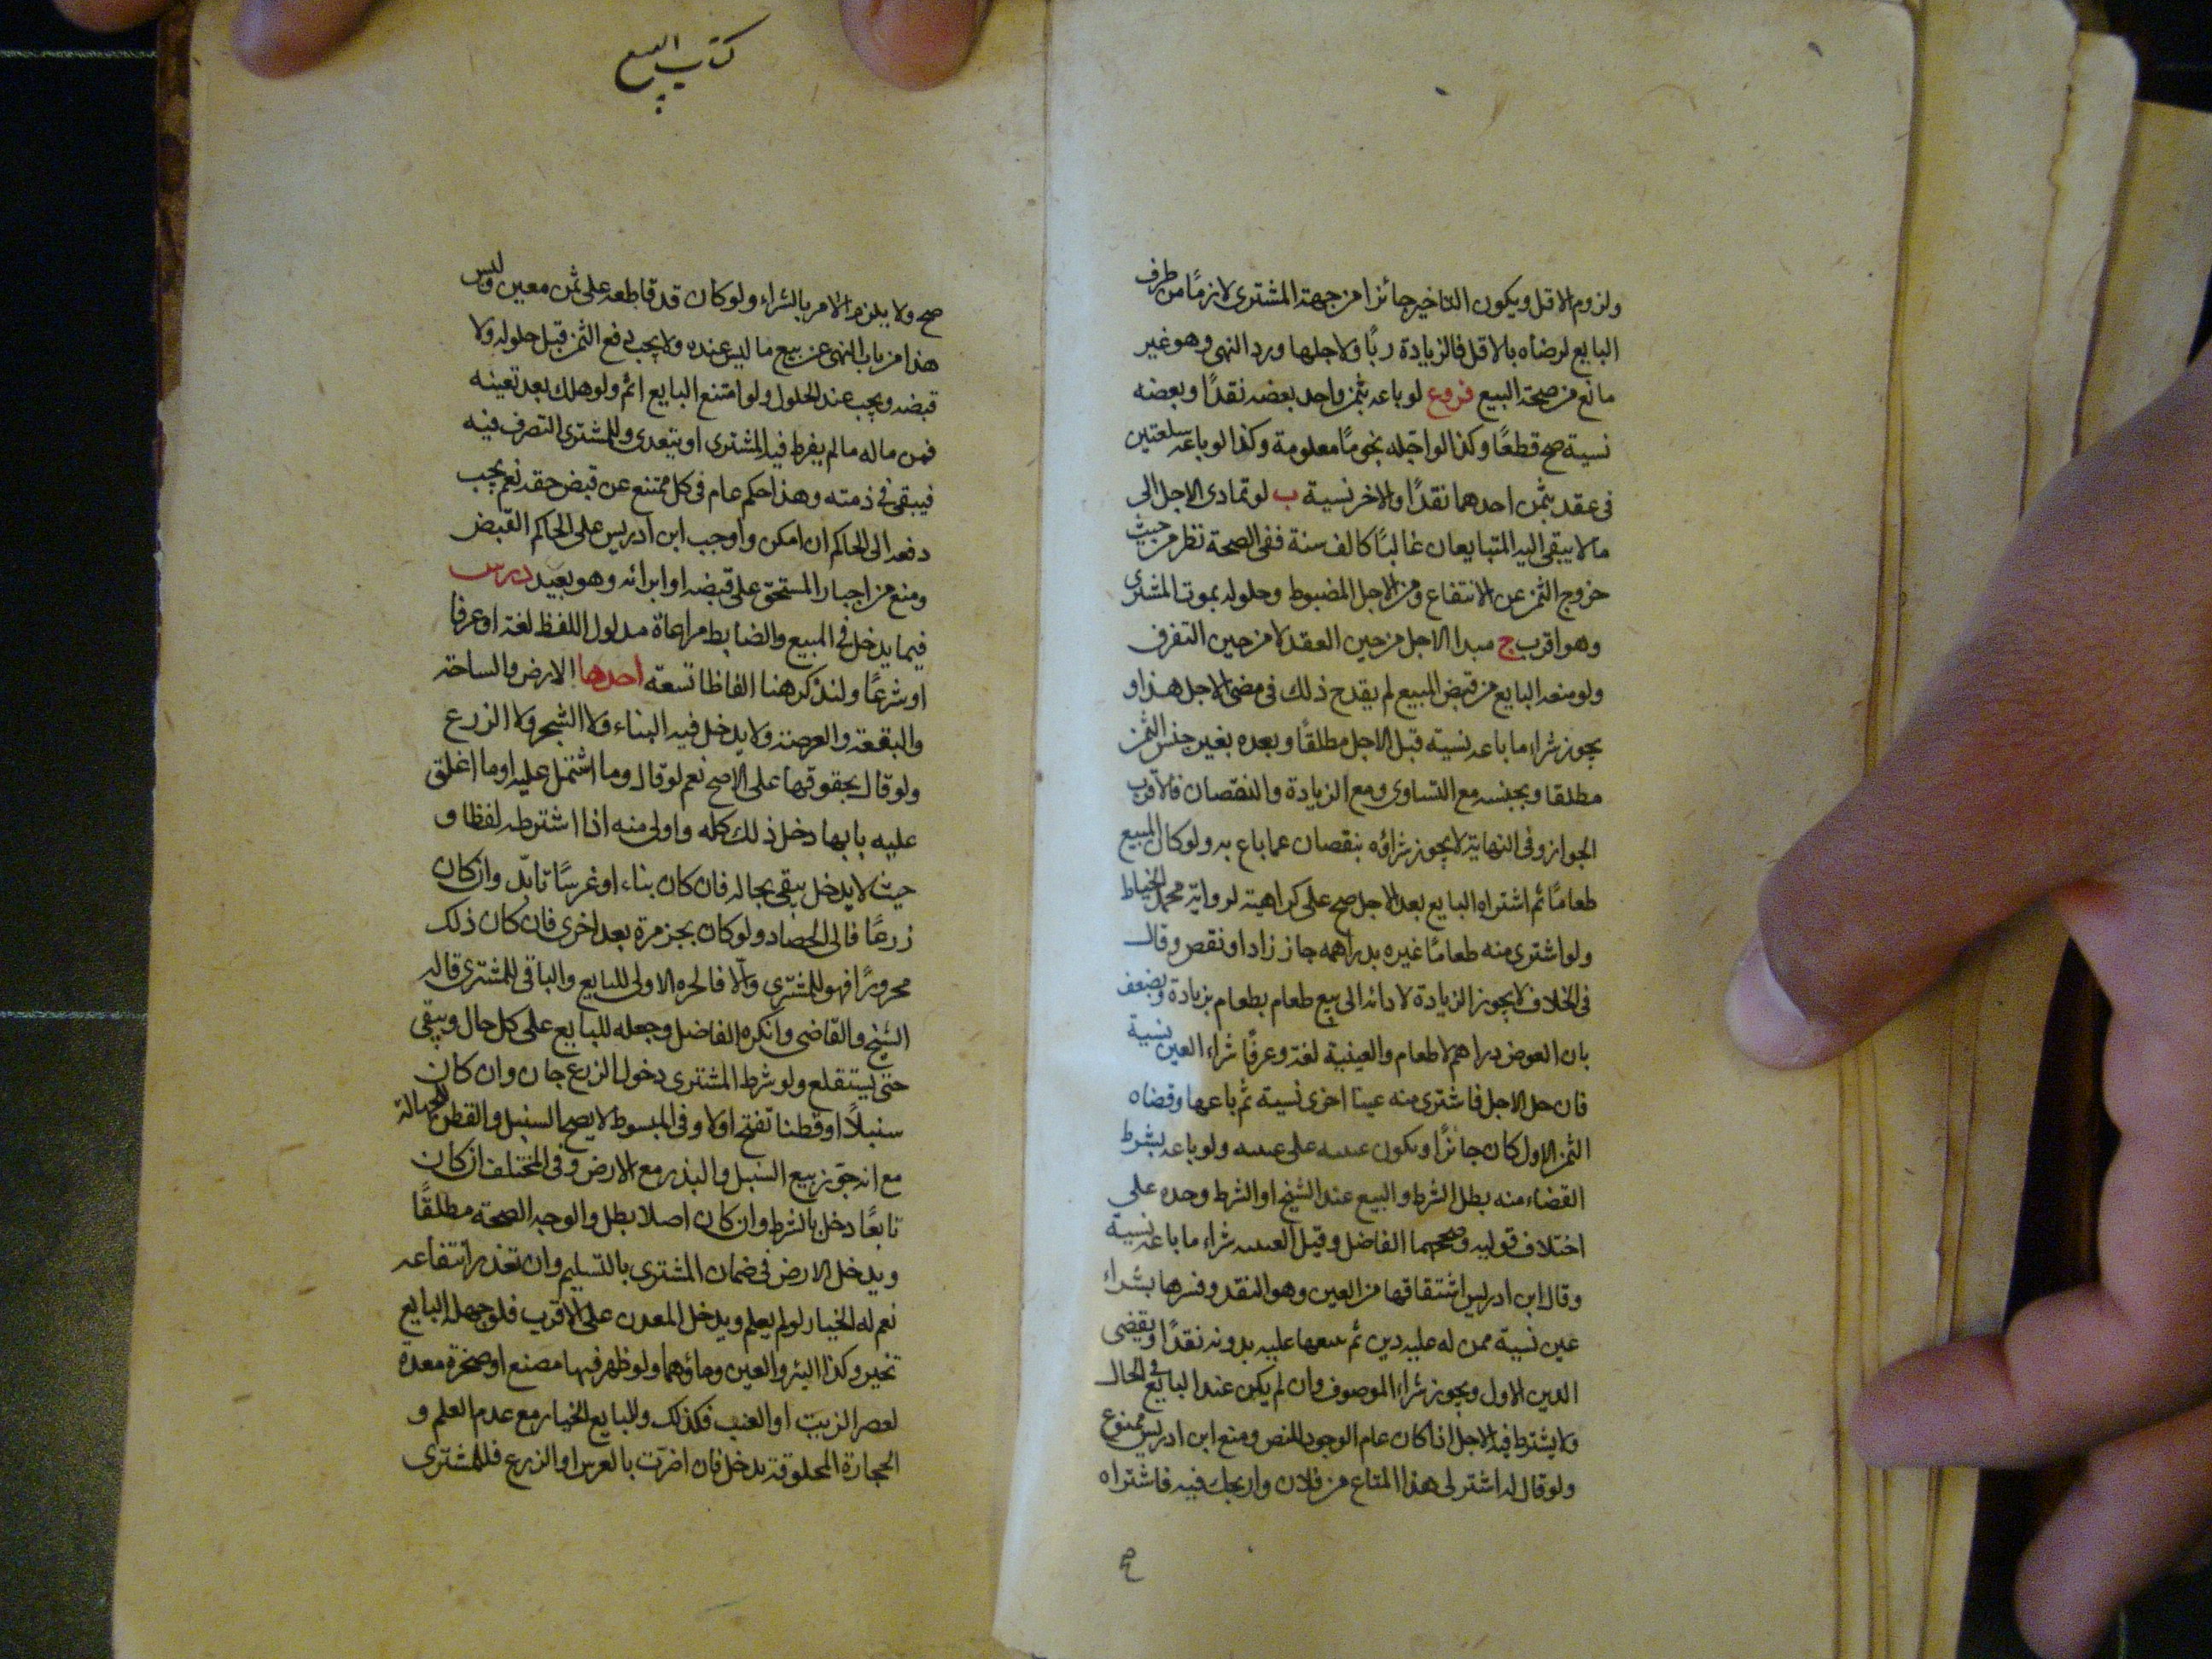 ولزوم الاقل ويكون التاخير جائزا من جهة المشترى لازمًا من طرف
البايع لرضاه بالاقل فالزيادة ربًا ولاجلها ورد النهى وهو غير
مانع من صحة البيع فروع لو باعه بثمن واحد بعضه نقدًا وبعضه
نسية صح قطعًا وكذا لو اجّله نجومًا معلومة وكذا لو باعه سلعتين
فى عقد بثمن احدهما نقدًا والاخر نسية ب لو تمادى الاجل الى
ما لا يبقى اليه المتبايعان غالبًا كالف سنة ففى الصحة نظر من حيث
خروج الثمن عن الانتفاع ومن الاجل المضبوط وحلوله بموت المشترى
وهو اقرب ج مبدا الاجل من حين العقد لا من حين التفرق
ولو منعه البايع من قبض المبيع لم يقدح ذلك فى مضى الاجل هذا و
يجوز شراء ما باعه نسية قبل الاجل مطلقًا وبعده بغير جنس الثمن
مطلقا وبجنسه مع التساوى ومع الزيادة والنقصان فالاقرب
الجواز وفى النهاية لا يجوز شراؤه بنقصان عما باع به ولو كان المبيع
طعامًا ثم اشتراه البايع بعد الاجل صح على كراهية لرواية محمد الخياط
ولو اشترى منه طعامًا غيره بدراهمه جاز زاد او نقص وقال
فى الخلاف لا يجوز الزيادة لادائه الى بيع طعام بطعام بزيادة ويضعف
بان العوض دراهم لا طعام والعينية لغة وعرفًا شراء العين نسية
فان حل الاجل فاشترى منه عينا اخرى نسية ثم باعها وقضاه
الثمن الاول كان جائزًا ويكون عينه على عينه ولو باعه بشرط
القضاء منه بطل الشرط والبيع عند الشيخ او الشرط وحده على
اختلاف قوليه وصححهما الفاضل وقيل العينه شراء ما باعه نسية
وقال ابن ادريس اشتقاقها من العين وهو النقد وفسرها بشراء
عين نسية ممن له عليه دين ثم يبيعها عليه بدونه نقدًا ويقضى
الدين الاول ويجوز شراء الموصوف وان لم يكن عند البايع فى الحال
ولا يشترط فيه الاجل اذا كان عام الوجود للنص ومنع ابن ادريس ممنوع
ولو قال له اشتر لى هذا المتاع من فلان واربحك فيه فاشتراه
صح
كتاب البيع
صح ولا يلزم الامر بالشراء ولو كان قد قاطعه على ثمن معين وليس
هذا من باب النهى عن بيع ما ليس عنده ولا يجب دفع الثمن قبل حلوله ولا
قبضه ويجب عند الحلول ولو امتنع البايع اثم ولو هلك بعد تعينه
فمن ماله ما لم يفرط فيه المشترى او يتعدى وللمشترى التصرف فيه
فيبقى فى ذمته وهذا حكم عام فى كل ممتنع عن قبض حقه نعم يجب
دفعه الى الحاكم ان امكن واوجب ابن ادريس على الحاكم القبض
ومنع من اجبار المستحق على قبضه او ابرائه وهو بعيد درس
فيما يدخل فى المبيع والضابط مراعاة مدلول اللفظ لغة او عرفا
او شرعًا ولنذكر هنا الفاظا تسعة احدها الارض والساحة
والبقعة والعرصة ولا يدخل فيه البناء ولا الشجر ولا الزرع
ولو قال بحقوقها على الاصح نعم لو قال وما اشتمل عليه او ما اغلق
عليه بابها دخل ذلك كله واولى منه اذا اشترطه لفظا و
حيث لا يدخل يبقى بحاله فان كان بناء او غرسًا تابّد وان كان
زرعًا فالى الحصاد ولو كان يجز مرة بعد اخرى فان كان ذلك
محرورًا فهو للمشترى والّا فالحره الاولى للبايع والباقى للمشترى قاله
الشيخ والقاضى وانكره الفاضل وجعله للبايع على كل حال ويبقى
حتى يستقلع ولو شرط المشترى دخول الزرع جان وان كان
سنبلًا او قطنا تفتح او لا وفى المبسوط لا يصح السنبل والقطن للجهالة
مع انه جوّز بيع السنبل والبذر مع الارض وفى المختلف ان كان
تابعًا دخل بالشرط وان كان اصلا بطل والوجه الصحة مطلقًا
ويدخل الارض فى ضمان المشترى بالتسليم وان تعذر انتفاعه
نعم له الخيار لو لم يعلم ويدخل المعدن على الاقرب فلو جهله البايع
تخير وكذا البئر والعين وماؤهما ولو ظهر فيها مصنع او صخرة معدة
لعصر الزيت او العنب فكذلك وللبايع الخيار مع عدم العلم و
الحجارة المخلوقة يدخل فان اضرّت بالغرس او الزرع فللمشترى